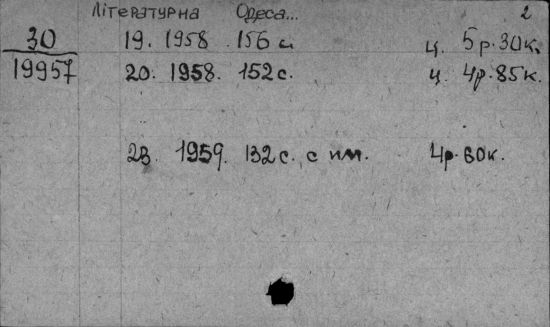 Літературна Одеса... 2
30 19. 1958 156 с. ц. 5р.30к.
19957 20. 1958. 152 с. ц. 4р.85к.
23. 1959. 132 с. с илл. 4р.60к.